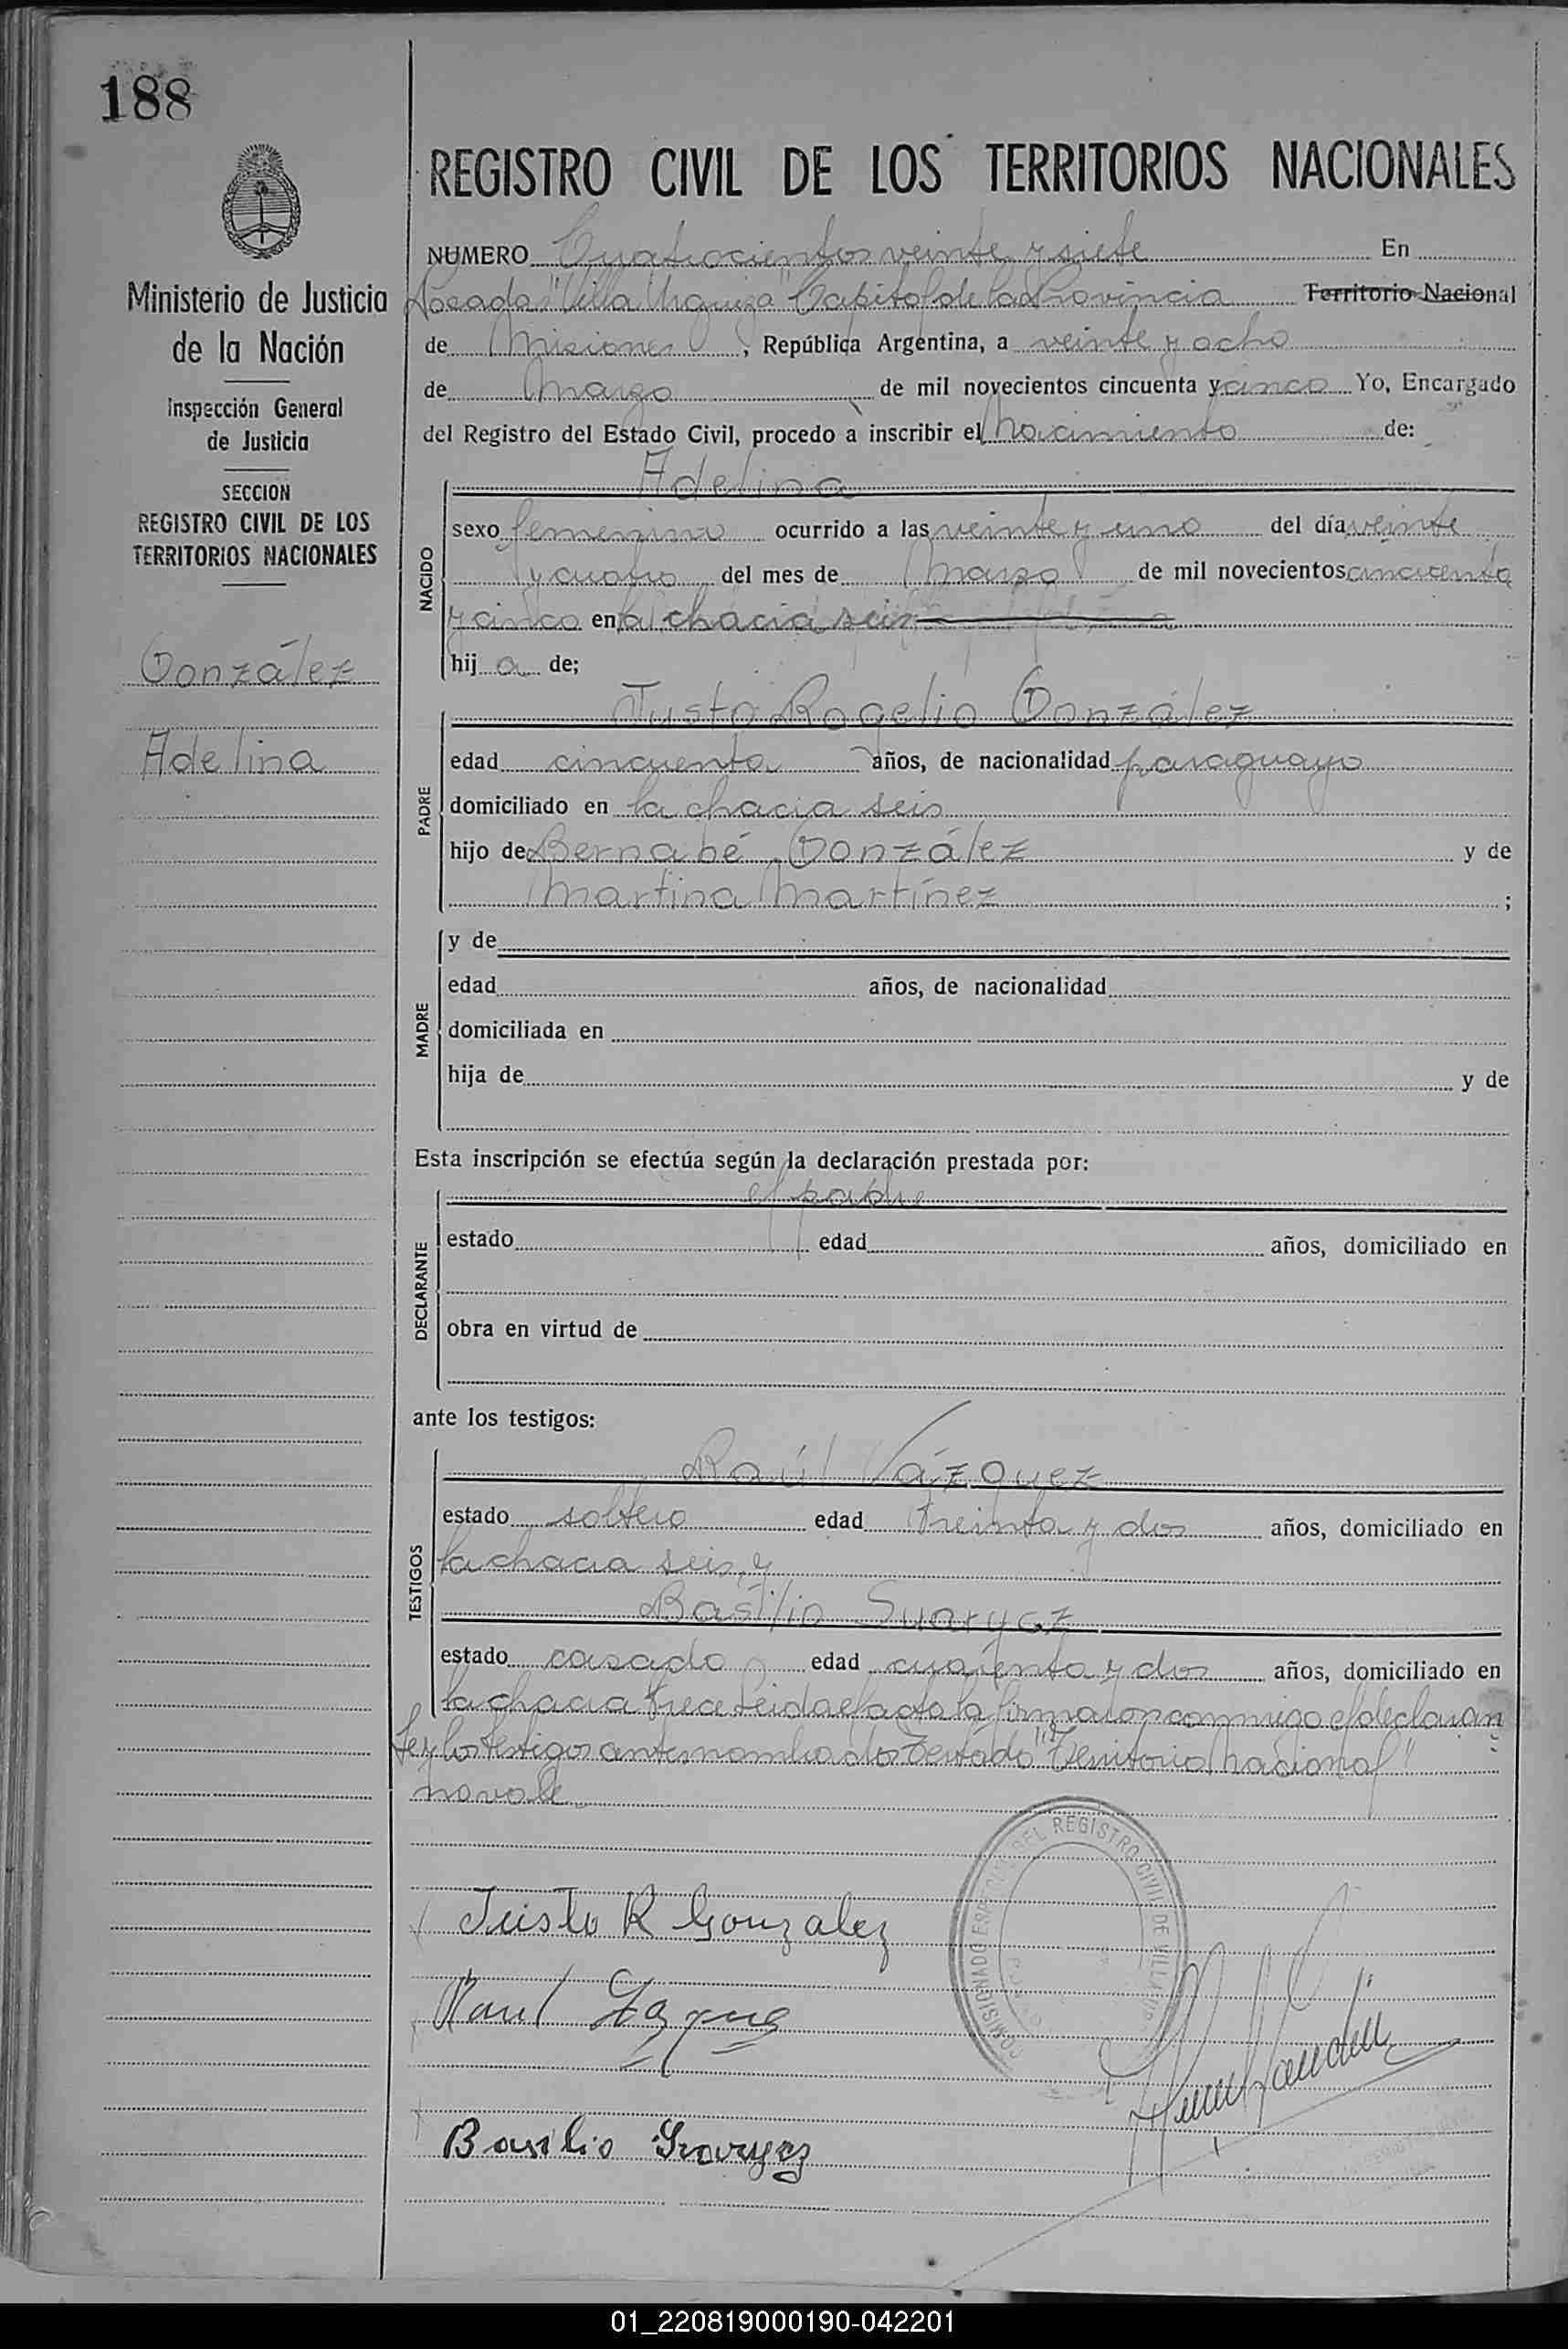 188
REGISTRO CIVIL DE LOS TERRITORIOS NACIONALES
Ministerio de Justicia
de la Nación
Inspección General
de Justicia
SECCION
REGISTRO CIVIL DE LOS
TERRITORIOS NACIONALES
González
Adelina
NUMERO Cuatrocientos veinte y siete En
Posadas "Villa Urquiza" Capital de la Provincia Territorio Nacional
de Misiones, República Argentina, a veinte y ocho
de Marzo de mil novecientos cincuenta y cinco Yo, Encargado
del Registro del Estado Civil, procedo a inscribir el Nacimiento de:
NACIDO
Adelina
sexo femenino ocurrido a las veinte y uno del día veinte
y cuatro del mes de Marzo de mil novecientos cincuenta
y cinco en la chacra seis
hij a de;
PADRE
Justo Rogelio González
edad cincuenta años, de nacionalidad paraguayo
domiciliado en la chacra seis
hijo de Bernabé González y de
Martina Martínez ;
MADRE
y de
edad años, de nacionalidad
domiciliada en
hija de y de
Esta inscripción se efectúa según la declaración prestada por:
DECLARANTE
el padre
estado edad años, domiciliado en
obra en virtud de
ante los testigos:
TESTIGOS
Raúl Vázquez
estado soltero edad treinta y dos años, domiciliado en
la chacra seis, y
Basilio Suarycz
estado casado edad cuarenta y dos años, domiciliado en
la chacra trece Leida el acta la firmaron conmigo el declaran
te y los testigos antes nombrados Testado "Territorio Nacional"
no vale
Justo R Gonzalez
Raul
Basilio
DEL REGISTRO CIVIL DE VILLA
01_220819000190-042201